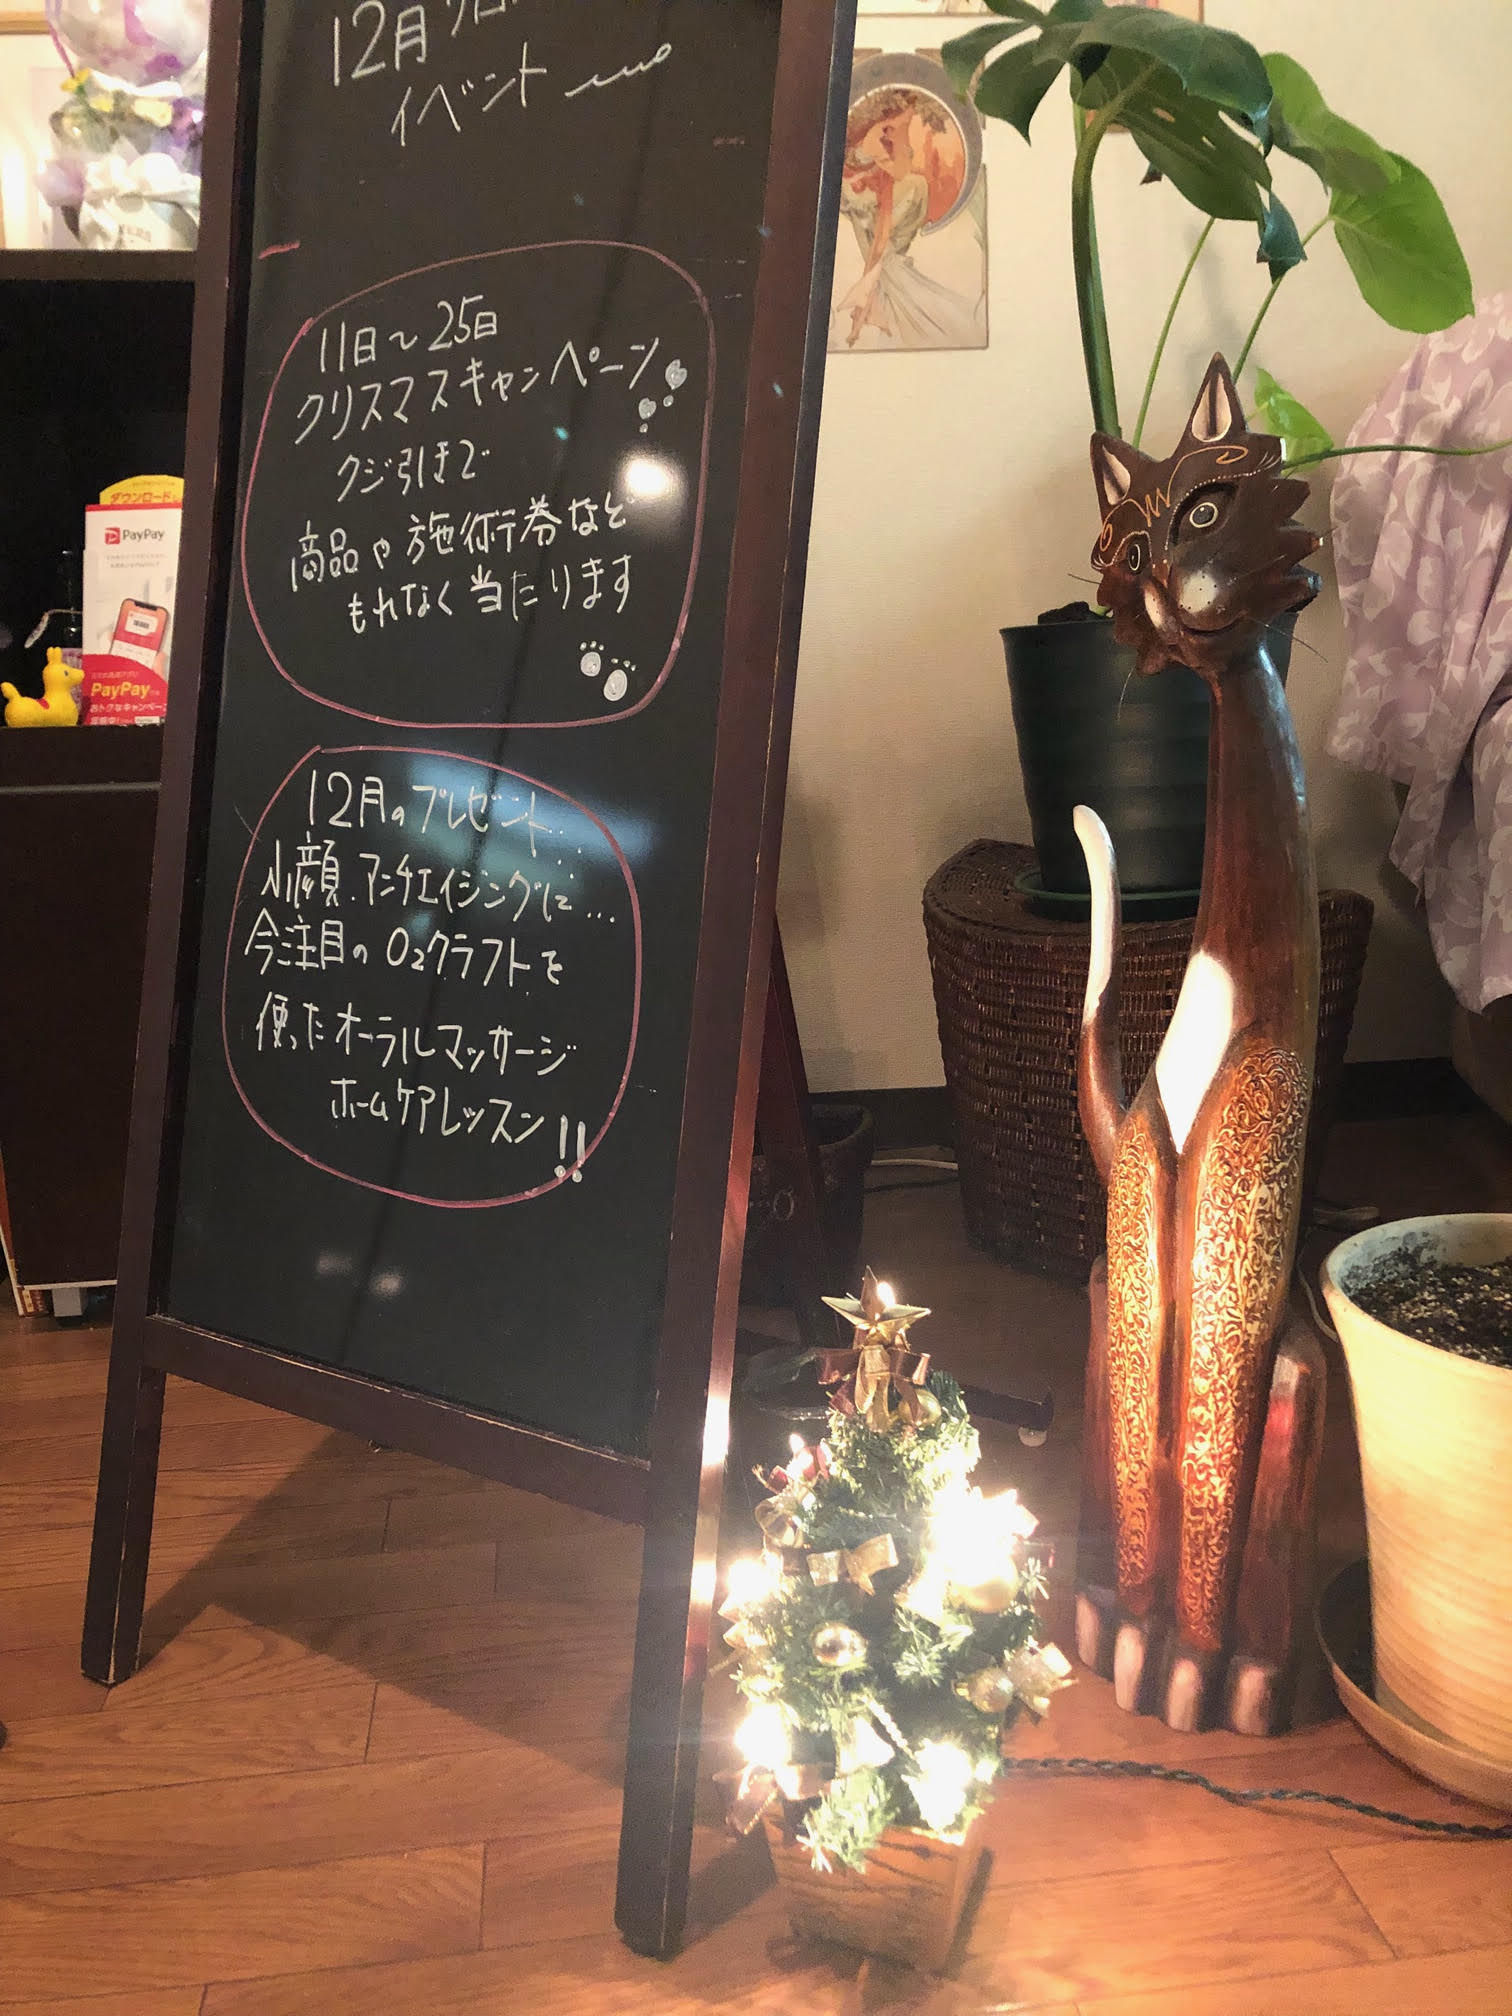 12月
イベント
11日～25日
クリスマスキャンペーン
クジ引きで
商品や施術券など
もれなく当たります
12月のプレゼント...
小顔.アンチエイジングに...
今注目のO2クラフトを
使ったオーラルマッサージ
ホームケアレッスン!!
ダウンロード
PayPay
PayPay
おトクなキャンペーン